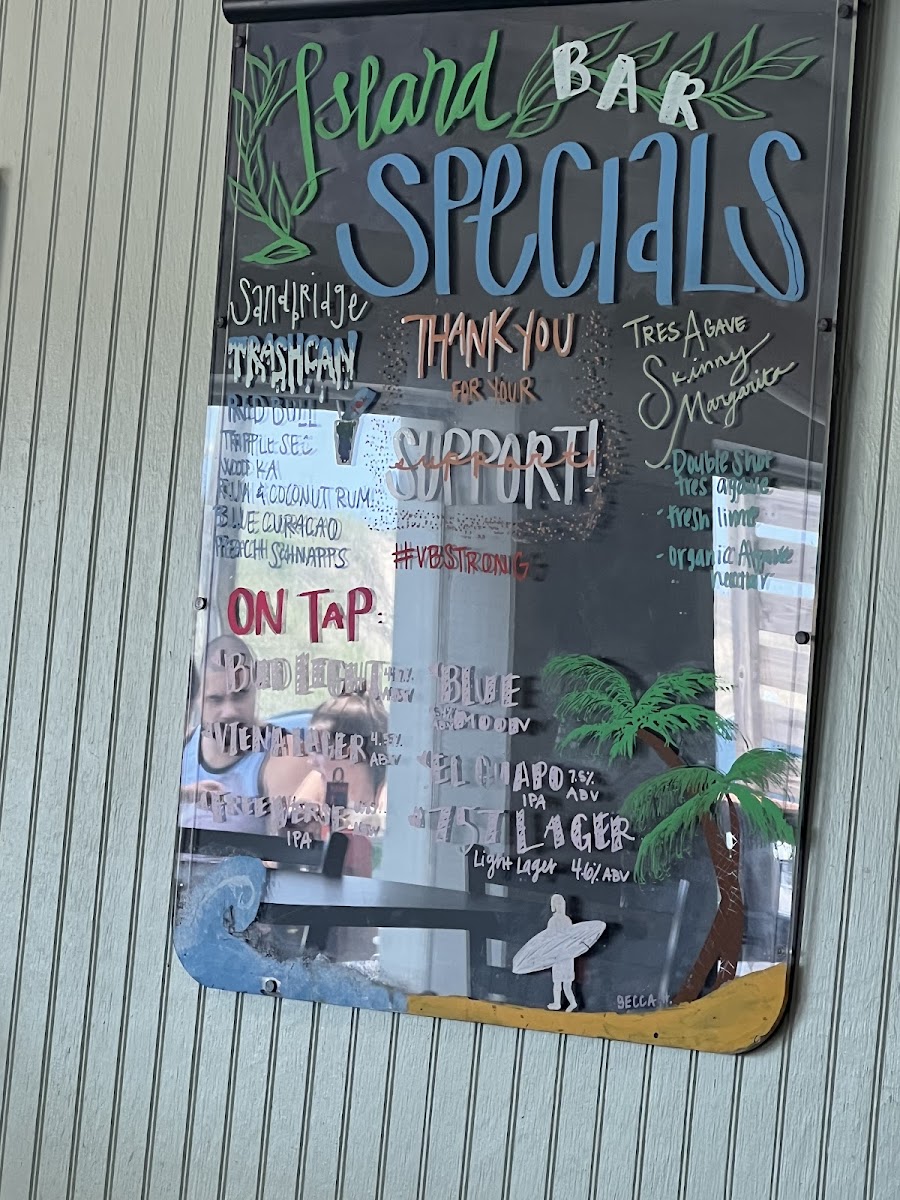 Island BAR
SPeCIaLS
Sandbridge
TRASHCAN
RED BULL
TRIPPLE SEC
VODKA
RUM & COCONUT RUM
BLUE CURACAO
PEACH SCHNAPPS
THANK YOU
FOR YOUR
SUPPORT!
support
#VBSTRONG
TRES AGAVE
Skinny
Margarita
- Double Shot
tres agave
- fresh lime
- organic Agave
nectar
ON TAP:
BUD LIGHT
ABV
VIENA LAGER
ABV
FREE VERSE
IPA
BLUE
MOON
EL GUAPO 7.5%
IPA ABV
757 LAGER
Light Lager 4.6% ABV
BECCA